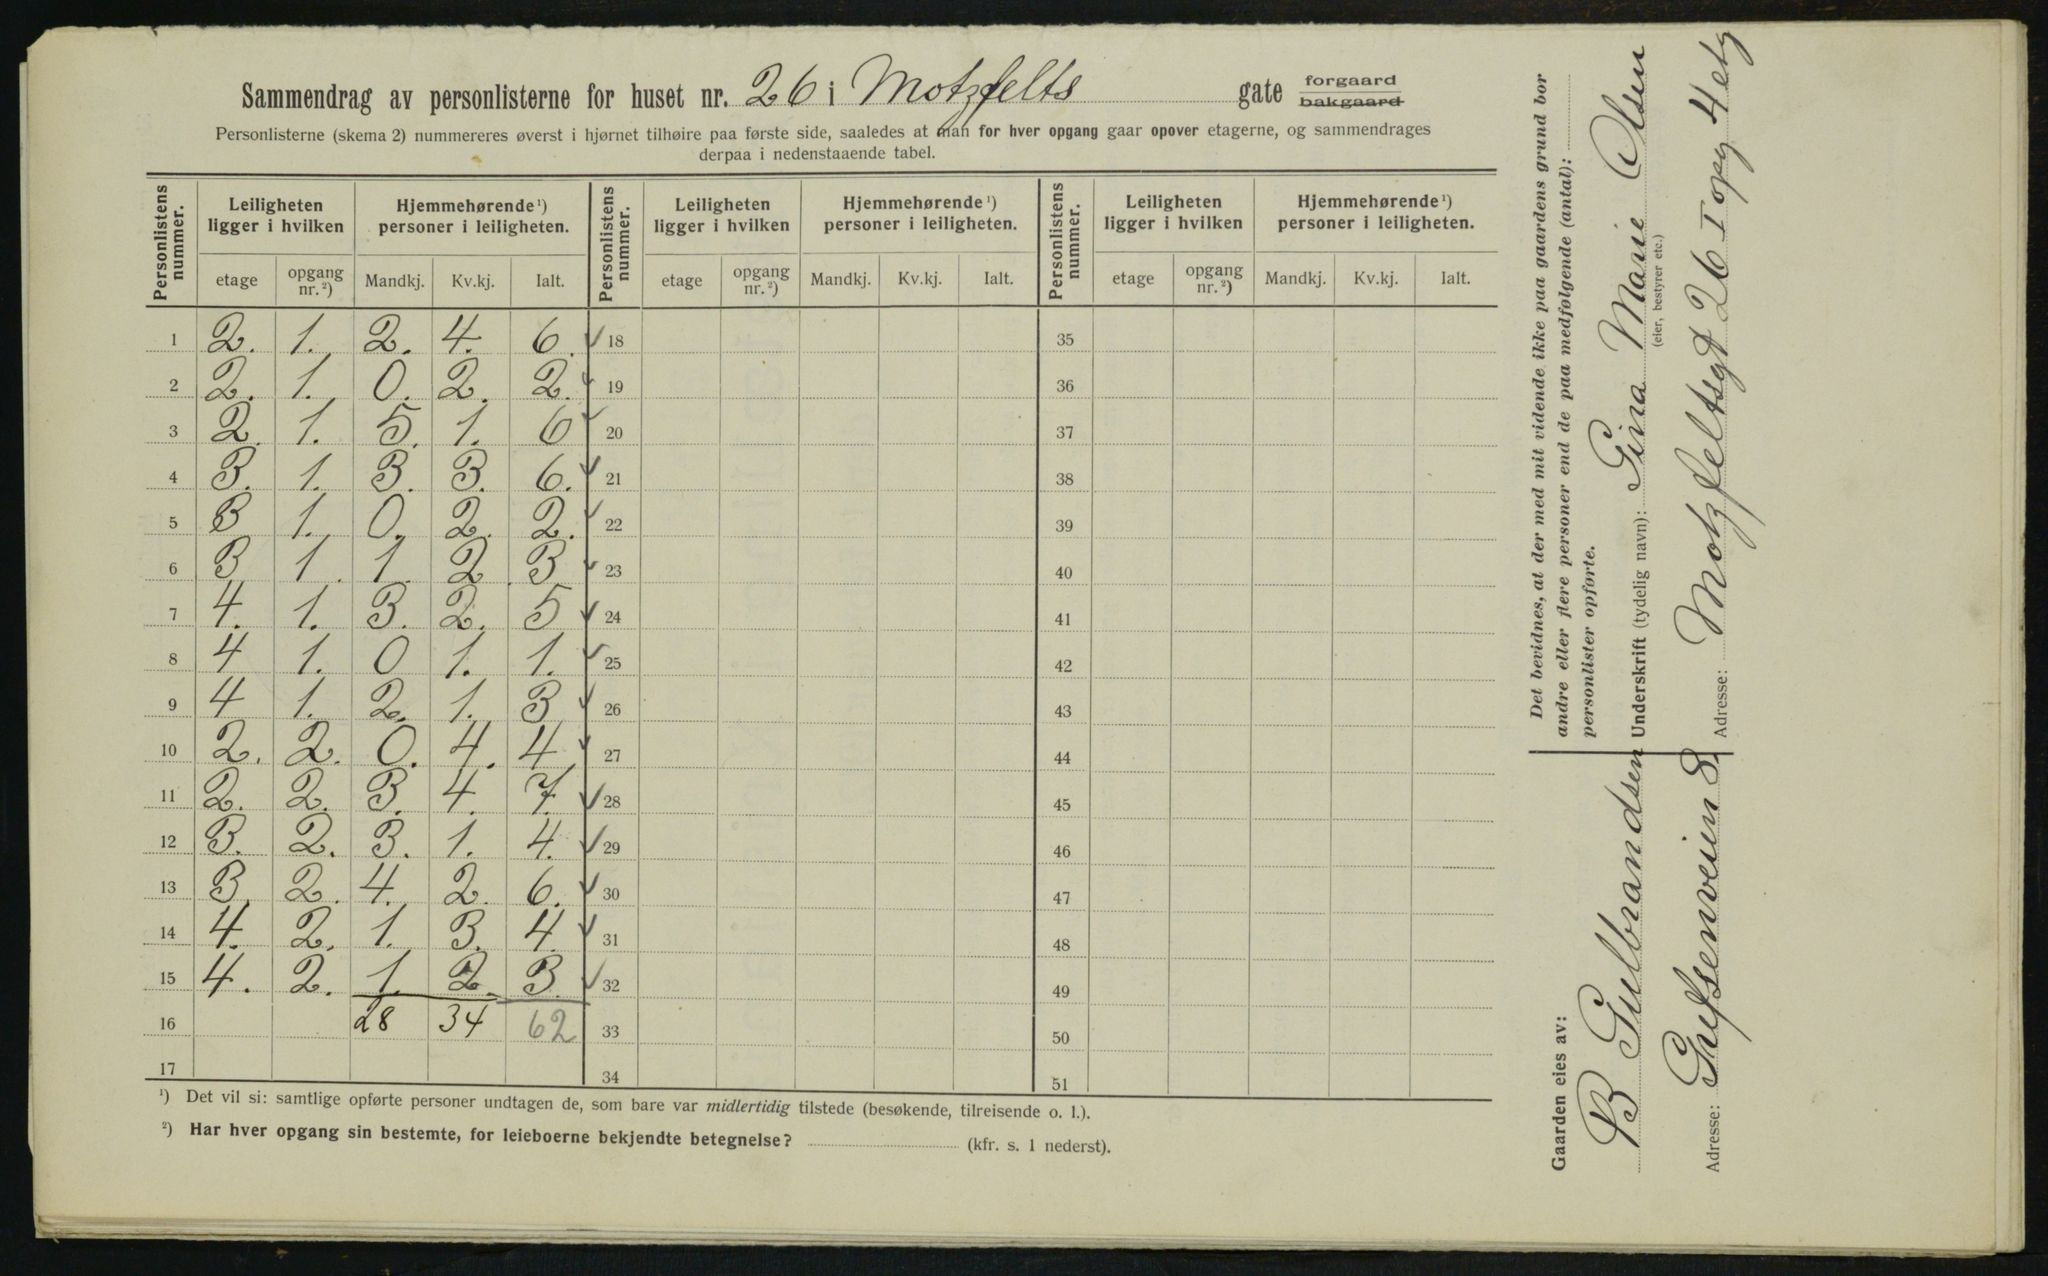 Sammendrag av personlisterne for huset nr. 26 i Motzfelts gate forgaard bakgaard
Personlisterne (skema 2) nummereres øverst i hjørnet tilhøire paa første side, saaledes at man for hver opgang gaar opover etagerne, og sammendrages
derpaa i nedenstaaende tabel.
Personlistens nummer. Leiligheten ligger i hvilken Hjemmehørende ¹) personer i leiligheten. Personlistens nummer. Leiligheten ligger i hvilken Hjemmehørende ¹) personer i leiligheten. Personlistens nummer. Leiligheten ligger i hvilken Hjemmehørende ¹) personer i leiligheten.
etage opgang nr.²) Mandkj. Kv.kj. Ialt. etage opgang nr.²) Mandkj. Kv.kj. Ialt. etage opgang nr.²) Mandkj. Kv.kj. Ialt.
1 2. 1. 2. 4. 6. ✓ 18 35
2 2. 1. 0. 2. 2. ✓ 19 36
3 2. 1. 5. 1. 6 ✓ 20 37
4 3. 1. 3. 3. 6. ✓ 21 38
5 3 1. 0. 2. 2. ✓ 22 39
6 3 1. 1. 2. 3 ✓ 23 40
7 4. 1. 3. 2. 5 ✓ 24 41
8 4 1. 0 1. 1. ✓ 25 42
9 4 1. 2. 1. 3 ✓ 26 43
10 2. 2. 0. 4. 4. ✓ 27 44
11 2. 2. 3. 4. 7. ✓ 28 45
12 3. 2. 3. 1. 4. ✓ 29 46
13 3. 2. 4. 2. 6. ✓ 30 47
14 4. 2. 1. 3. 4. ✓ 31 48
15 4. 2. 1. 2. 3. ✓ 32 49
16 28 34 62 33 50
17 34 51
¹) Det vil si: samtlige opførte personer undtagen de, som bare var midlertidig tilstede (besøkende, tilreisende o. l.).
²) Har hver opgang sin bestemte, for leieboerne bekjendte betegnelse? (kfr. s. 1 nederst).
Det bevidnes, at der med mit vidende ikke paa gaardens grund bor
andre eller flere personer end de paa medfølgende (antal):
personlister opførte.
Underskrift (tydelig navn): Gina Marie Olsen
(eier, bestyrer etc.)
Adresse: Motzfeltsgt 26 I opg 4 etg
Gaarden eies av:
B Gulbrandsen
Adresse: Grefsenveien 8.